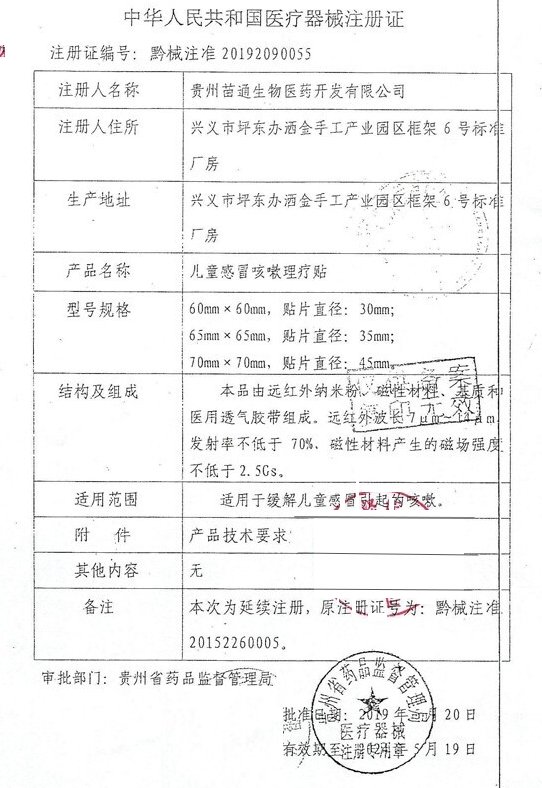 中华人民共和国医疗器械注册证
注册证编号：黔械注准 20192090055
注册人名称 贵州苗通生物医药开发有限公司
注册人住所 兴义市坪东办洒金手工产业园区框架 6 号标准
厂房
生产地址 兴义市坪东办洒金手工产业园区框架 6 号标准
厂房
产品名称 儿童感冒咳嗽理疗贴
型号规格 60mm×60mm，贴片直径：30mm；
65mm×65mm，贴片直径：35mm；
70mm×70mm，贴片直径：45mm。
结构及组成 本品由远红外纳米粉、磁性材料、基质和
医用透气胶带组成。远红外波长 7μm～14μm，
发射率不低于 70%、磁性材料产生的磁场强度
不低于 2.5Gs。
适用范围 适用于缓解儿童感冒引起的咳嗽。
附 件 产品技术要求
其他内容 无
备注 本次为延续注册，原注册证号为：黔械注准
20152260005。
审批部门：贵州省药品监督管理局
批准日期：2019 年 月 20 日
有效期至 年 5 月 19 日
贵州省药品监督管理局
医疗器械
注册专用章
备案
复印无效